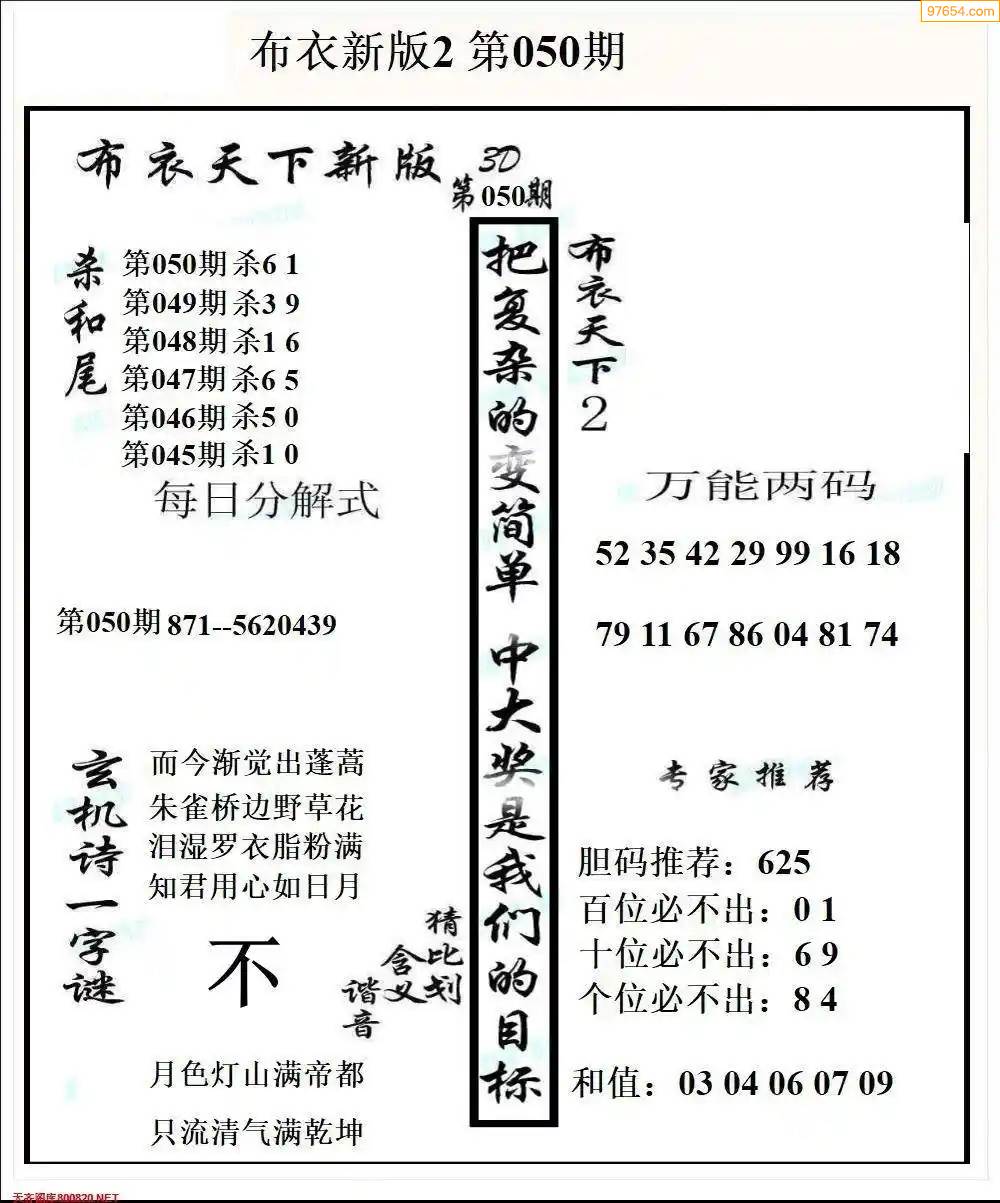 97654.com
布衣新版2 第050期
布衣天下新版
3D
第050期
杀和尾
第050期 杀6 1
第049期 杀3 9
第048期 杀1 6
第047期 杀6 5
第046期 杀5 0
第045期 杀1 0
每日分解式
第050期 871--5620439
玄机诗一字谜
而今渐觉出蓬蒿
朱雀桥边野草花
泪湿罗衣脂粉满
知君用心如日月
不
猜比划
含义
谐音
月色灯山满帝都
只流清气满乾坤
把复杂的变简单 中大奖是我们的目标
布衣天下2
万能两码
52 35 42 29 99 16 18
79 11 67 86 04 81 74
专家推荐
胆码推荐：625
百位必不出：0 1
十位必不出：6 9
个位必不出：8 4
和值：03 04 06 07 09